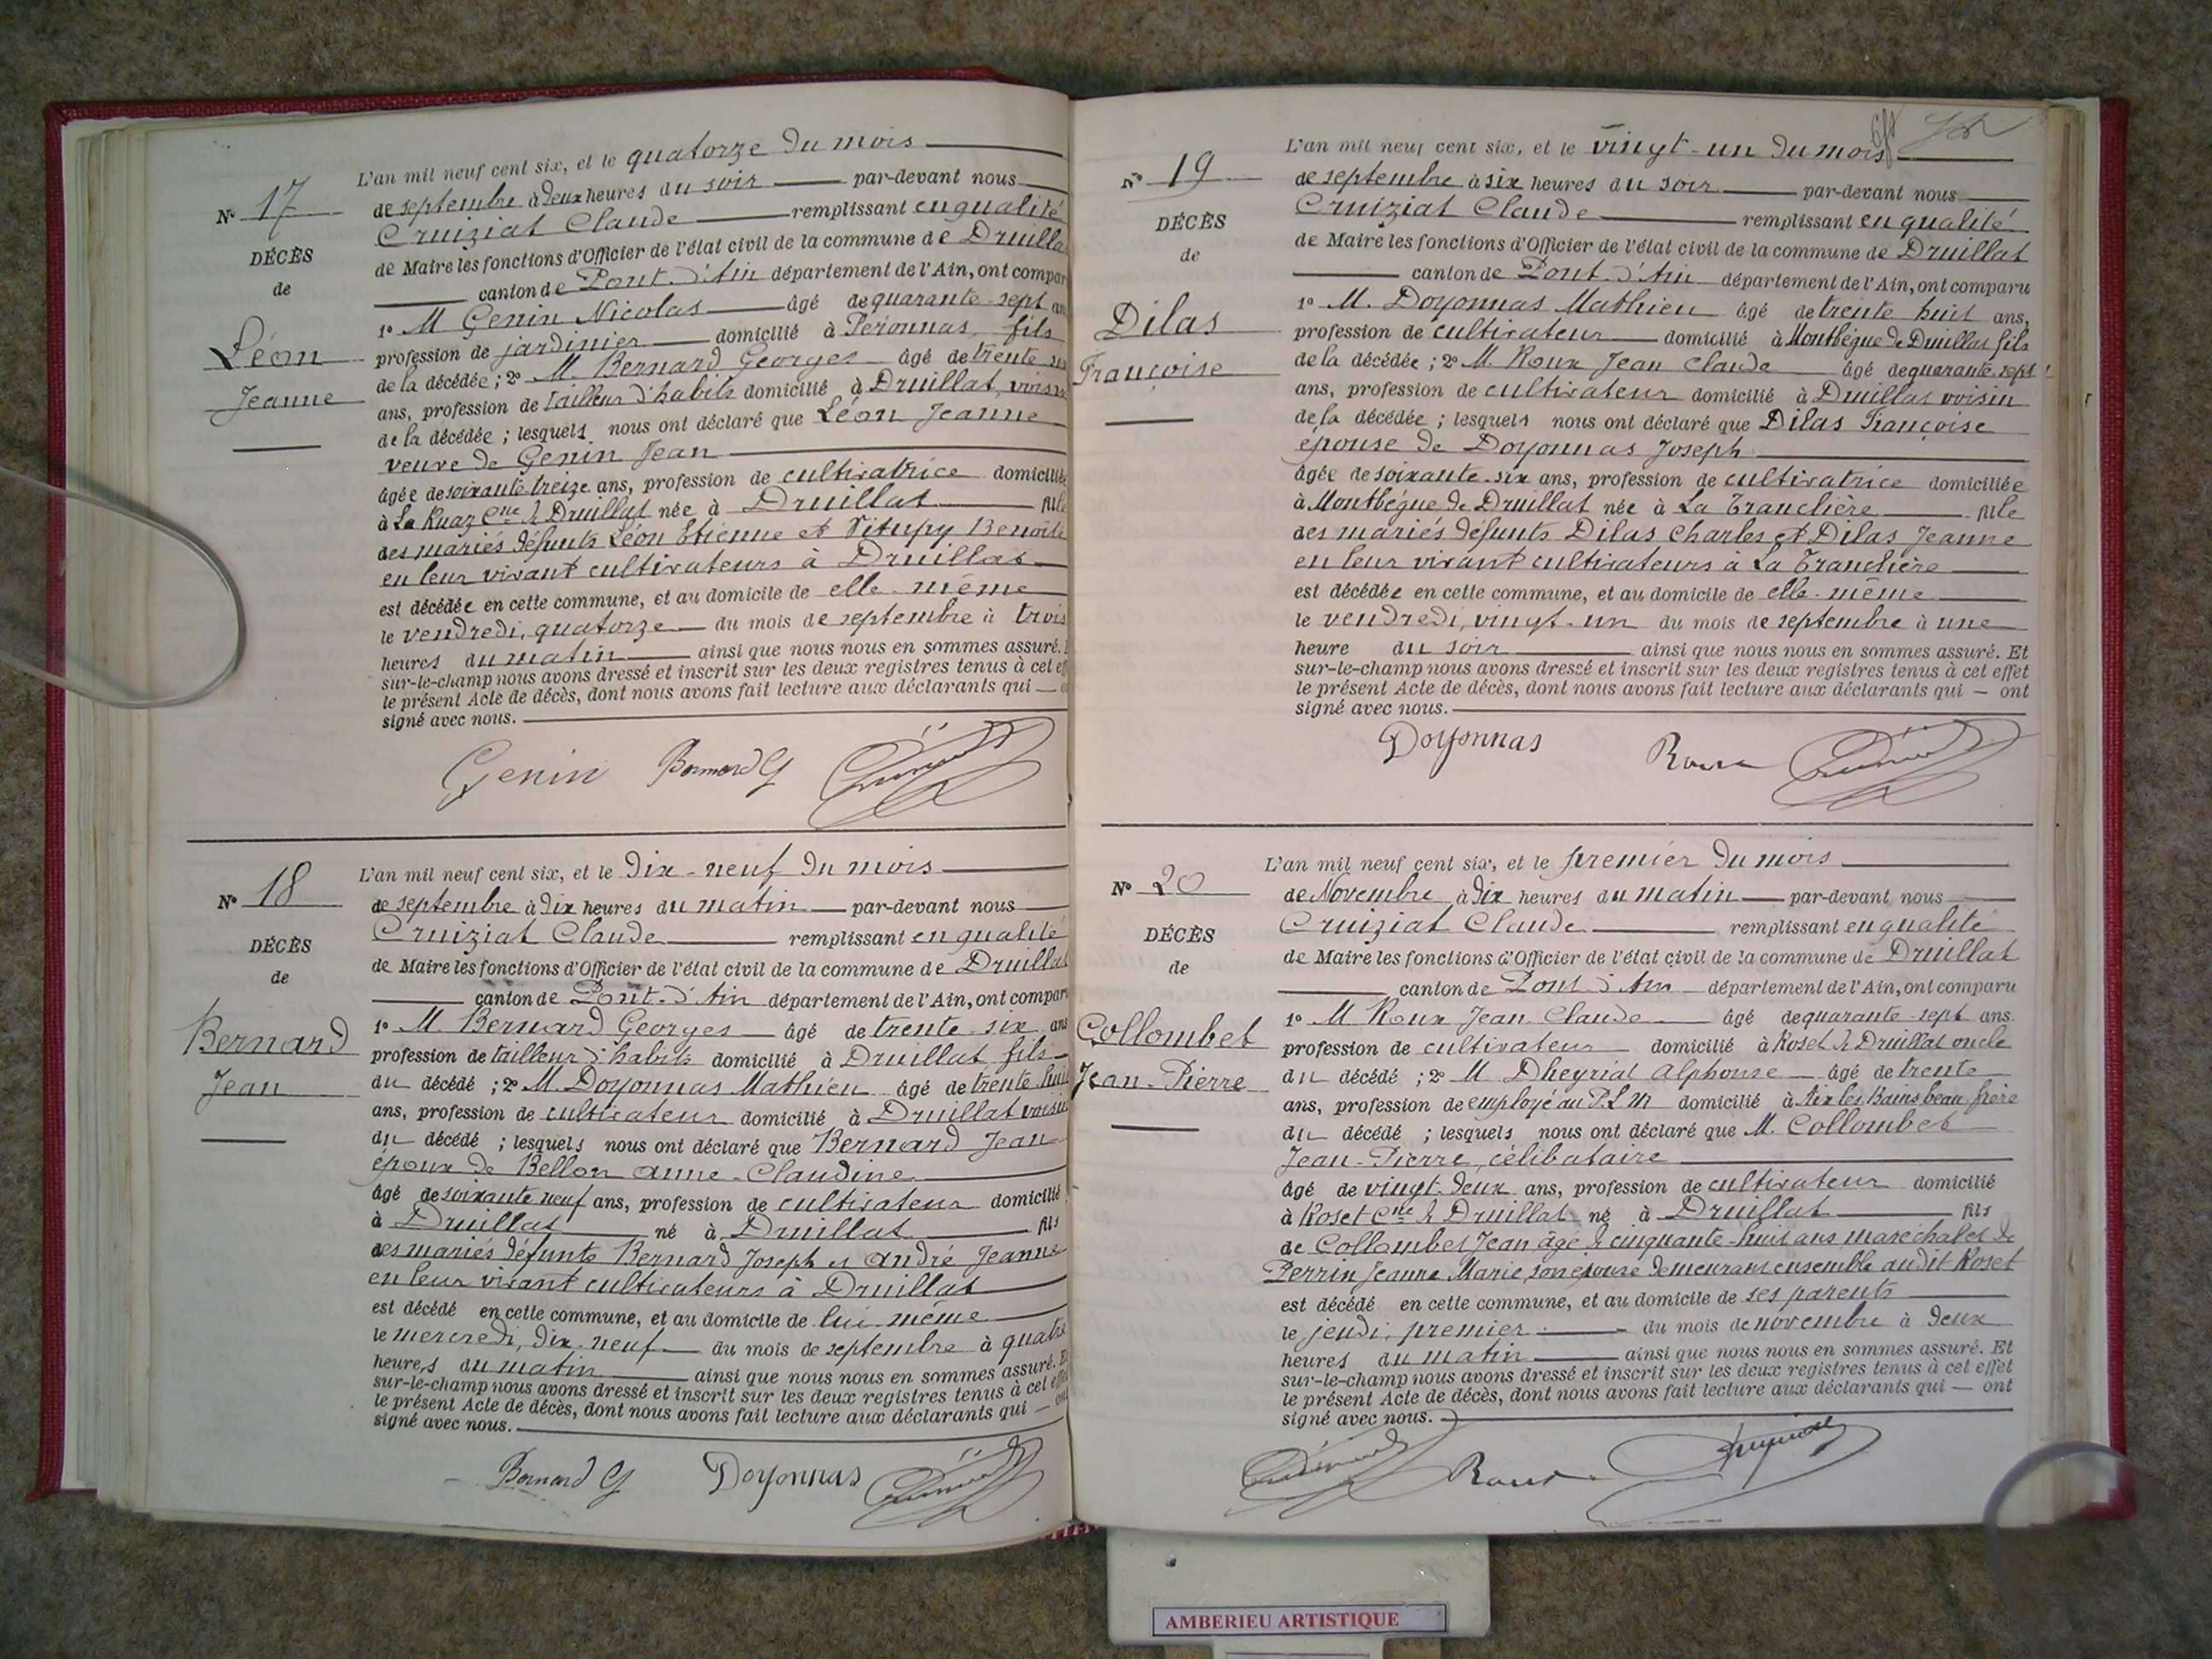 L'an mil neuf cent six, et le quatorze du mois
N° 17
de septembre à deux heures du soir par-devant nous
Cruiziat Claude remplissant en qualité
DÉCÈS
de Maire les fonctions d'Officier de l'état civil de la commune de Druilla
de
canton de Pont-d'Ain département de l'Ain, ont compar
1° M Genin Nicolas âgé de quarante-sept an
Léon
profession de jardinier domicilié à Péronnas, fils
de la décédée ; 2° M. Bernard Georges âgé de trente six
Jeanne
ans, profession de tailleur d'habits domicilié à Druillat, voisin
de la décédée ; lesquels nous ont déclaré que Léon Jeanne
veuve de Genin Jean
âgée de soixante treize ans, profession de cultivatrice domiciliée
à La Ruaz Cne de Druillat née à Druillat fille
des mariés défunts Léon Etienne et Vitupy Benoite
en leur vivant cultivateurs à Druillat
est décédée en cette commune, et au domicile de elle-même
le vendredi, quatorze du mois de septembre à trois
heures du matin ainsi que nous nous en sommes assuré.
sur-le-champ nous avons dressé et inscrit sur les deux registres tenus à cet eff
le présent Acte de décès, dont nous avons fait lecture aux déclarants qui — o
signé avec nous.
Genin Bernard G
L'an mil neuf cent six, et le dix-neuf du mois
N° 18
de septembre à dix heures du matin par-devant nous
Cruiziat Claude remplissant en qualité
DÉCÈS
de Maire les fonctions d'Officier de l'état civil de la commune de Druillat
de
canton de Pont-d'Ain département de l'Ain, ont compar
1° M. Bernard Georges âgé de trente-six ans
Bernard
profession de tailleur d'habits domicilié à Druillat fils
Jean
du décédé ; 2° M. Doyonnas Mathieu âgé de trente-huit
ans, profession de cultivateur domicilié à Druillat voisin
du décédé ; lesquels nous ont déclaré que Bernard Jean
époux de Bellon Anne-Claudine
âgé de soixante neuf ans, profession de cultivateur domicilié
à Druillat né à Druillat fils
des mariés défunts Bernard Joseph et André Jeanne
en leur vivant cultivateurs à Druillat
est décédé en cette commune, et au domicile de lui-même
le mercredi, dix-neuf du mois de septembre à quatre
heures du matin ainsi que nous nous en sommes assuré. Et
sur-le-champ nous avons dressé et inscrit sur les deux registres tenus à cet effet
le présent Acte de décès, dont nous avons fait lecture aux déclarants qui — ont
signé avec nous.
Bernard G Doyonnas
L'an mil neuf cent six, et le vingt-un du mois
N° 19
de septembre à six heures du soir par-devant nous
Cruiziat Claude remplissant en qualité
DÉCÈS
de Maire les fonctions d'Officier de l'état civil de la commune de Druillat
de
canton de Pont-d'Ain département de l'Ain, ont comparu
1° M. Doyonnas Mathieu âgé de trente huit ans,
Dilas
profession de cultivateur domicilié à Montbègue de Druillat fils
Françoise
de la décédée ; 2° M. Roux Jean Claude âgé de quarante-sept
ans, profession de cultivateur domicilié à Druillat voisin
de la décédée ; lesquels nous ont déclaré que Dilas Françoise
épouse de Doyonnas Joseph
âgée de soixante-six ans, profession de cultivatrice domiciliée
à Montbègue de Druillat née à La Tranclière fille
des mariés défunts Dilas Charles et Dilas Jeanne
en leur vivant cultivateurs à La Tranclière
est décédée en cette commune, et au domicile de elle-même
le vendredi, vingt-un du mois de septembre à une
heure du soir ainsi que nous nous en sommes assuré. Et
sur-le-champ nous avons dressé et inscrit sur les deux registres tenus à cet effet
le présent Acte de décès, dont nous avons fait lecture aux déclarants qui — ont
signé avec nous.
Doyonnas Roux
L'an mil neuf cent six, et le premier du mois
N° 20
de Novembre à dix heures du matin par-devant nous
Cruiziat Claude remplissant en qualité
DÉCÈS
de Maire les fonctions d'Officier de l'état civil de la commune de Druillat
de
canton de Pont d'Ain département de l'Ain, ont comparu
1° M Roux Jean-Claude âgé de quarante-sept ans.
Collombet
profession de cultivateur domicilié à Roset de Druillat oncle
Jean-Pierre
du décédé ; 2° M Dheyriat Alphonse âgé de trente
ans, profession de employé au P.L.M domicilié à Aix les Bains beau-frère
du décédé ; lesquels nous ont déclaré que M. Collombet
Jean-Pierre, célibataire
âgé de vingt-deux ans, profession de cultivateur domicilié
à Roset Cne de Druillat né à Druillat fils
de Collombet Jean âgé de cinquante-huit ans maréchal et de
Perrin Jeanne Marie son épouse demeurant ensemble audit Roset
est décédé en cette commune, et au domicile de ses parents
le jeudi, premier du mois de novembre à deux
heures du matin ainsi que nous nous en sommes assuré. Et
sur-le-champ nous avons dressé et inscrit sur les deux registres tenus à cet effet
le présent Acte de décès, dont nous avons fait lecture aux déclarants qui — ont
signé avec nous.
Roux
AMBERIEU ARTISTIQUE